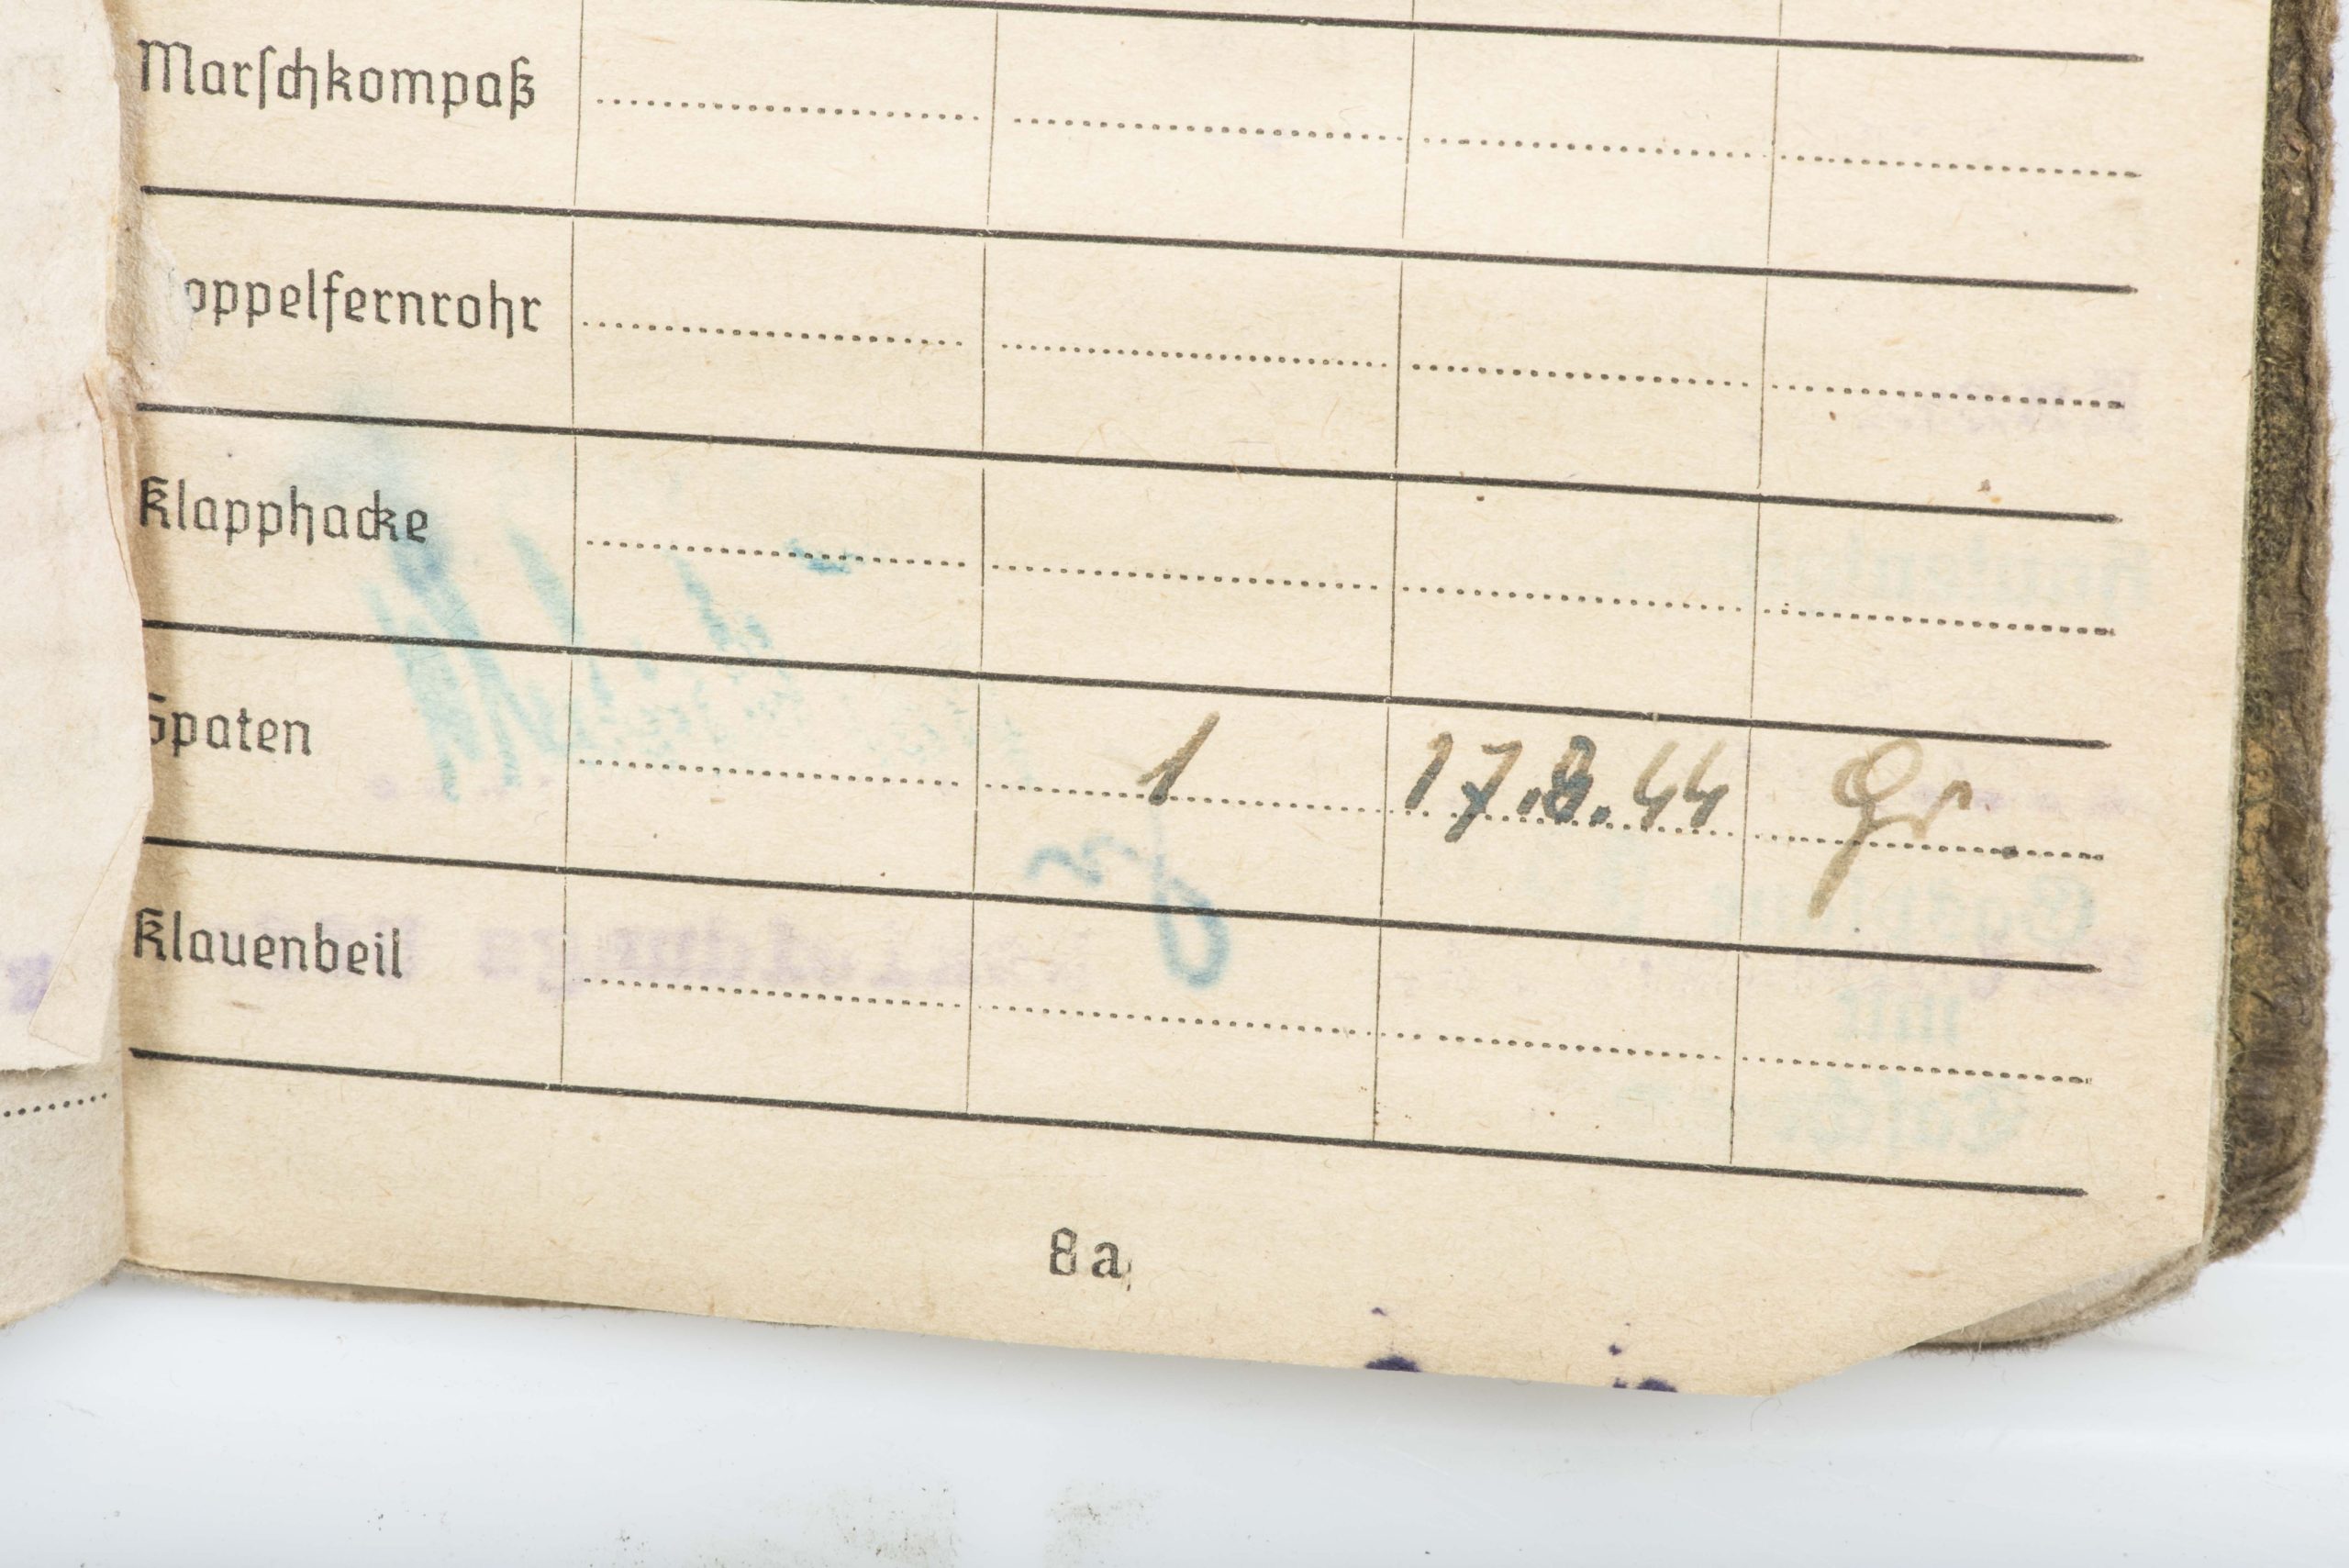 Marschkompaß
oppelfernrohr
Klapphacke
Spaten 1 17.8.44 Gr
Klauenbeil
8a